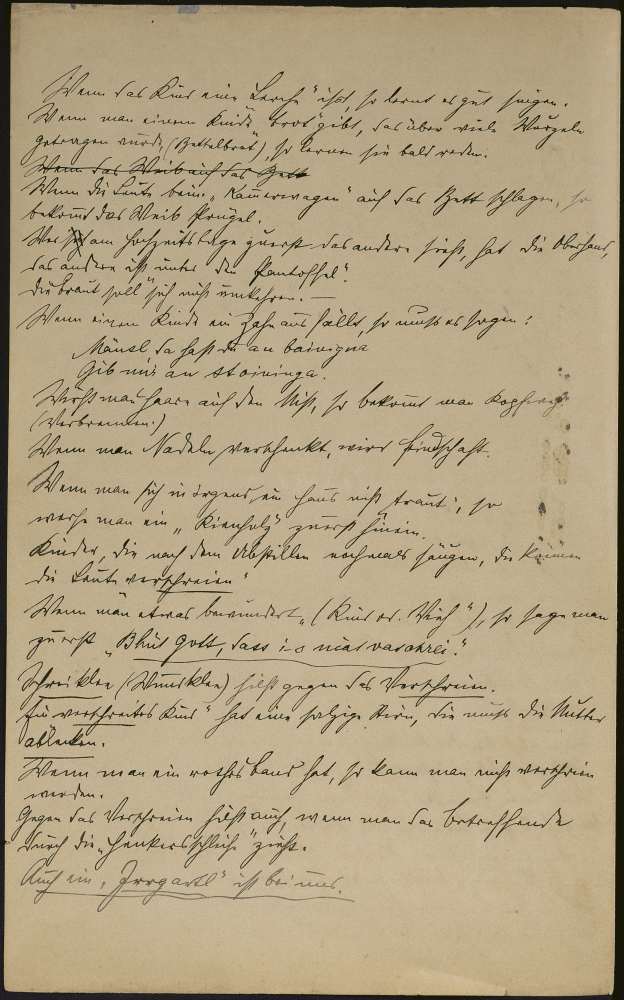 Wenn das Kind eine „Lerche“ ißt, so lernt es gut singen.
Wenn man einem Kinde „brot“ gibt, das über viele Wurzeln
getragen wurde, (Bettelbrot“), so lernen sie bald reden.
Wenn das Weib auf das Bett
Wenn die Leute beim „Kammerwagen“ auf das Bett schlagen, so
bekommt das Weib Prügel.
Wer am Hochzeitstage zuerst das andere sieht, hat die Oberhand,
das andere ist unter dem Pantoffel“.
Die Braut soll sich nicht umkehren. —
Wenn einem Kinde ein Zahn aus fällt, so muß es sagen:
Mäusl da hast du an boinigna
Gib mir an stoininga.
Wirft man Haare auf den Mist, so bekommt man Kopfweh
(Verbrennen!)
Wenn man Nadeln verschenkt, wird Feindschaft.
Wenn man sich in irgend ein Haus nicht traut“, so
werfe man ein „Kienholz“ zuerst hinein.
Kinder, die nach dem Abstillen nochmals säugen, die können
die Leute verschreien“
Wenn man etwas bewundert, (Kind od. Vieh“), so sage man
zuerst „Bhüt Gott, dass i's niat vaschrei“.
Schreiklee (Wundklee) hilft gegen das Verschreien.
Ein verschreites Kind“ hat eine salzige Stirn, die muß die Mutter
ablecken.
Wenn man ein rothes Band hat, so kann man nicht verschrien
werden.
Gegen das Verschreien hilft auch, wenn man das betreffende
durch die „Henkersschleife“ zieht.
Auch ein „Irrgartl“ ist bei uns.